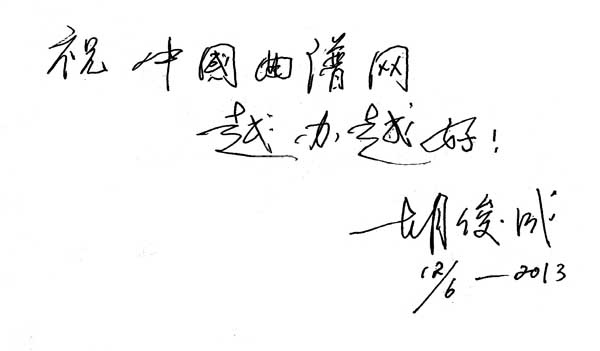 祝中國曲谱网
越办越好!
胡俊成
12/6-2013